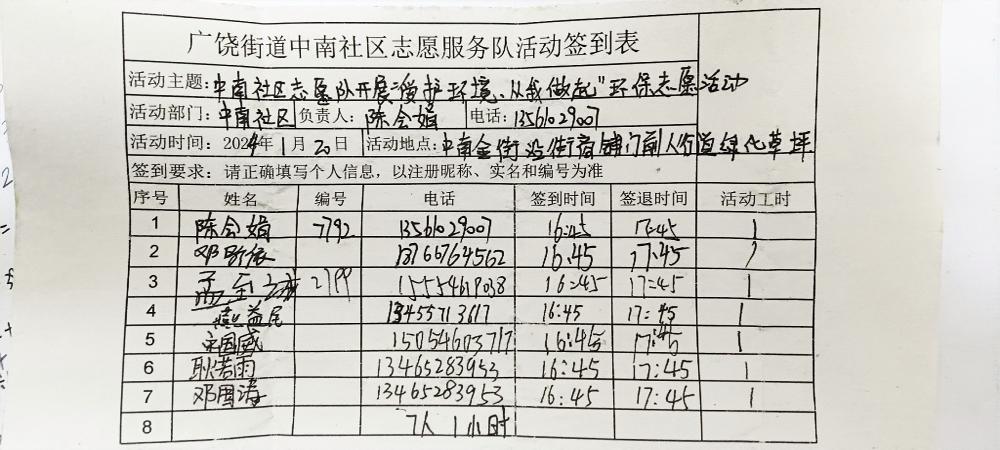 广饶街道中南社区志愿服务队活动签到表
活动主题:中南社区志愿队开展"爱护环境、从我做起"环保志愿活动
活动部门:中南社区 负责人:陈会娟 电话:13561029007
活动时间:2024年1月20日 活动地点:中南金街沿街商铺门前人行道绿化草坪
签到要求:请正确填写个人信息,以注册昵称、实名和编号为准
序号 姓名 编号 电话 签到时间 签退时间 活动工时
1 陈会娟 7792 13561029007 16:45 17:45 1
2 13766764562 16.45 17.45 1
3 2799 15554619038 16:45 17:45 1
4 13455713617 16:45 17:45 1
5 15054603717 16:45 17:45 1
6 耿若雨 13465283953 16:45 17:45 1
7 邓国涛 13465283953 16:45 17:45 1
8 7人 1小时